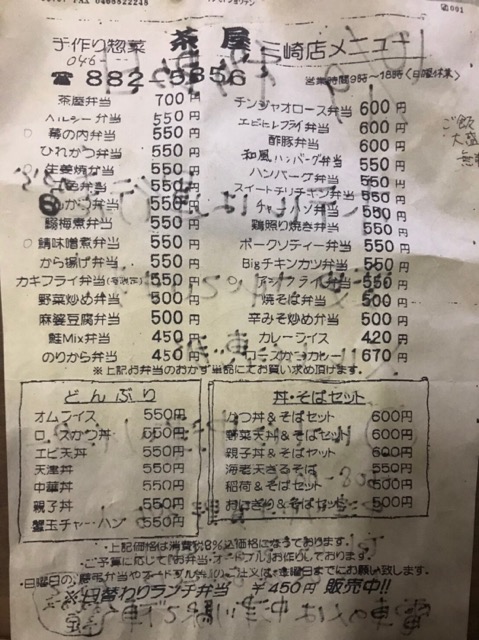 手作り惣菜 茶屋 三崎店メニュー
046
☎ 882-5856 営業時間9時～18時(日曜休業)
茶屋弁当 700円
ヘルシー弁当 550円
幕の内弁当 550円
ひれかつ弁当 550円
生姜焼弁当 550円
弁当 550円
弁当 550円
鰯梅煮弁当 550円
鯖味噌煮弁当 550円
から揚げ弁当 550円
カキフライ弁当 550円
野菜炒め弁当 500円
麻婆豆腐弁当 500円
鮭Mix弁当 450円
のりから弁当 450円
チンジャオロース弁当 600円
エビヒレフライ弁当 600円
酢豚弁当 600円
和風ハンバーグ弁当 550円
ハンバーグ弁当 550円
スイートチリチキン弁当 550円
チャーハン弁当 500円
鶏照り焼き弁当 550円
ポークソティー弁当 550円
Bigチキンカツ弁当 550円
アジフライ弁当 550円
焼そば弁当 500円
辛みそ炒め弁当 500円
カレーライス 420円
ロースかつカレー 670円
ご飯
大盛
無料
※上記お弁当のおかず単品にてお買い求め頂けます。
どんぶり
オムライス 550円
ロースかつ丼 550円
エビ天丼 550円
天津丼 550円
中華丼 550円
親子丼 550円
蟹玉チャーハン 550円
丼・そばセット
かつ丼&そばセット 600円
野菜天丼&そばセット 600円
親子丼&そばセット 600円
海老天ざるそば 550円
稲荷&そばセット 500円
おにぎり&そばセット 500円
・上記価格は消費税8%込価格になっております。
・ご予算に応じて『お弁当・オードブル』お作りしております。
・日曜日の『慶弔弁当やオードブル等』のご注文は、金曜日までにお願い致します。
※日替わりランチ弁当 ￥450円 販売中!!